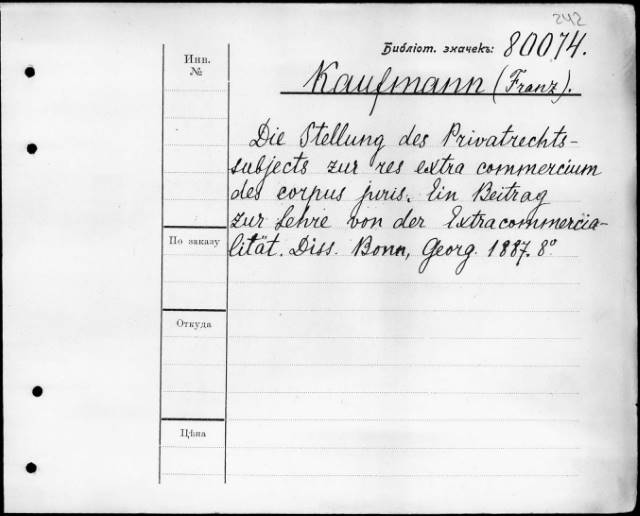 242
Библіот. значекъ: 80074.
Инв.
№
Kaufmann (Franz).
Die Stellung des Privatrechts-
subjects zur res extra commercium
des corpus juris. Ein Beitrag
zur Lehre von der Extracommercia-
По заказу
lität. Diss. Bonn, Georg. 1887. 8º
Откуда
Цѣна